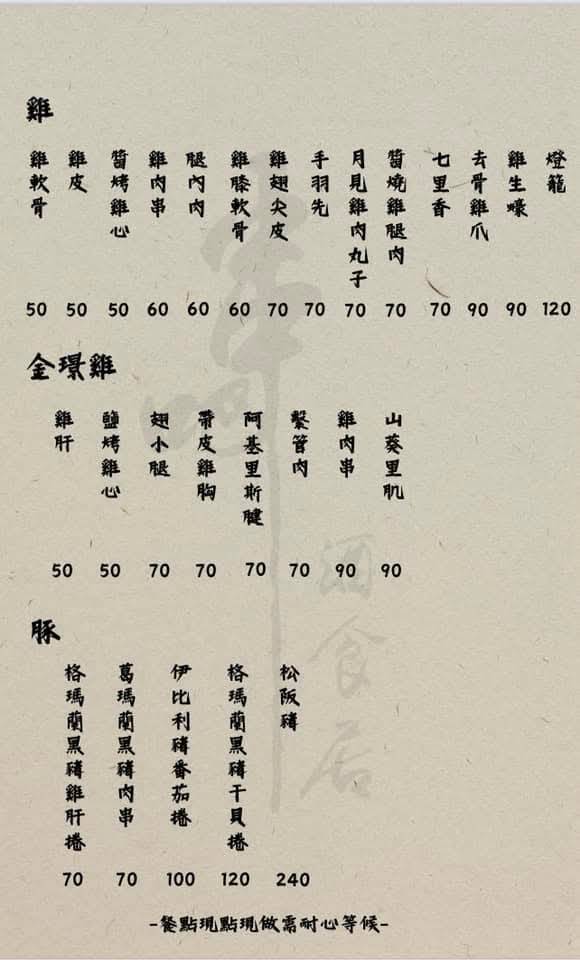 雞
雞軟骨 50
雞皮 50
醬烤雞心 50
雞肉串 60
腿內肉 60
雞膝軟骨 60
雞翅尖皮 70
手羽先 70
月見雞肉丸子 70
醬燒雞腿肉 70
七里香 70
去骨雞爪 90
雞生蠔 90
燈籠 120
金璟雞
雞肝 50
鹽烤雞心 50
翅小腿 70
帶皮雞胸 70
阿基里斯腱 70
繫管肉 70
雞肉串 90
山葵里肌 90
豚
格瑪蘭黑豬雞肝捲 70
葛瑪蘭黑豬肉串 70
伊比利豬番茄捲 100
格瑪蘭黑豬干貝捲 120
松阪豬 240
酒食居
-餐點現點現做需耐心等候-